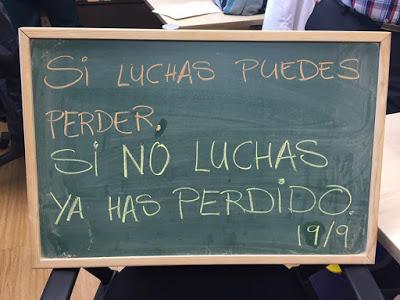 Si LUCHAS PUEDES
PERDER.
Si NO LUCHAS
YA HAS PERDiDO.
19/9